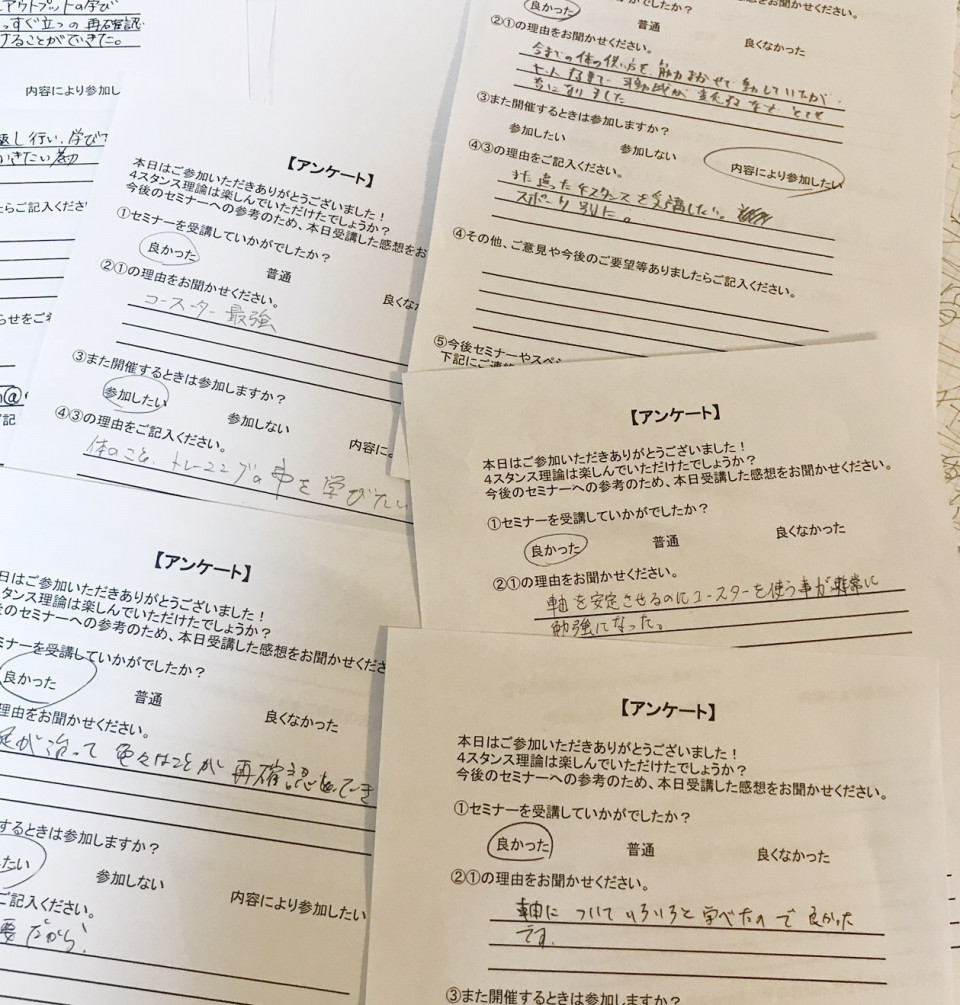 アウトプットの学び
っすぐ立つの再確認
することができた。
内容により参加し
返し行い、学びて
いきたい為
たらご記入くださ
らせをご
【アンケート】
本日はご参加いただきありがとうございました！
4スタンス理論は楽しんでいただけたでしょうか？
今後のセミナーへの参考のため、本日受講した感想をお
①セミナーを受講していかがでしたか？
良かった 普通 良くな
②①の理由をお聞かせください。
コースター最強
③また開催するときは参加しますか？
参加したい 参加しない 内容に
④③の理由をご記入ください。
体のこと、トレーニングの事を学びたい
良かった 普通 良くなかった
②①の理由をお聞かせください。
今までの体の使い方を、筋力まかせで動していたが、
になりました
③また開催するときは参加しますか？
参加したい 参加しない 内容により参加したい
④③の理由をご記入ください。
また違った4スタンスを受講したい。
スポーツ別に。
④その他、ご意見や今後のご要望等ありましたらご記入ください。
⑤今後セミナーやスペシ
下記にご連絡
【アンケート】
本日はご参加いただきありがとうございました！
4スタンス理論は楽しんでいただけたでしょうか？
今後のセミナーへの参考のため、本日受講した感想をお聞かせください。
①セミナーを受講していかがでしたか？
良かった 普通 良くなかった
②①の理由をお聞かせください。
軸を安定させるのにコースターを使う事が非常に
勉強になった。
【アンケート】
日はご参加いただきありがとうございました！
スタンス理論は楽しんでいただけたでしょうか？
後のセミナーへの参考のため、本日受講した感想をお聞かせくださ
ミナーを受講していかがでしたか？
良かった 普通 良くなかった
理由をお聞かせください。
が治って色々なことが再確認でき
するときは参加しますか？
たい 参加しない 内容により参加したい
ご記入ください。
要だから！
【アンケート】
本日はご参加いただきありがとうございました！
4スタンス理論は楽しんでいただけたでしょうか？
今後のセミナーへの参考のため、本日受講した感想をお聞かせください。
①セミナーを受講していかがでしたか？
良かった 普通 良くなかった
②①の理由をお聞かせください。
軸についていろいろと学べたので良かった
です。
③また開催するときは参加しますか？